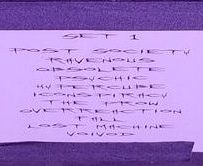 SET 1
POST SOCIETY
RAVENOUS
OBSOLETE
PSYCHIC
HYPERCUBE
ICONSPIRACY
THE PROW
OVERREACTION
FALL
LOST MACHINE
VOIVOD